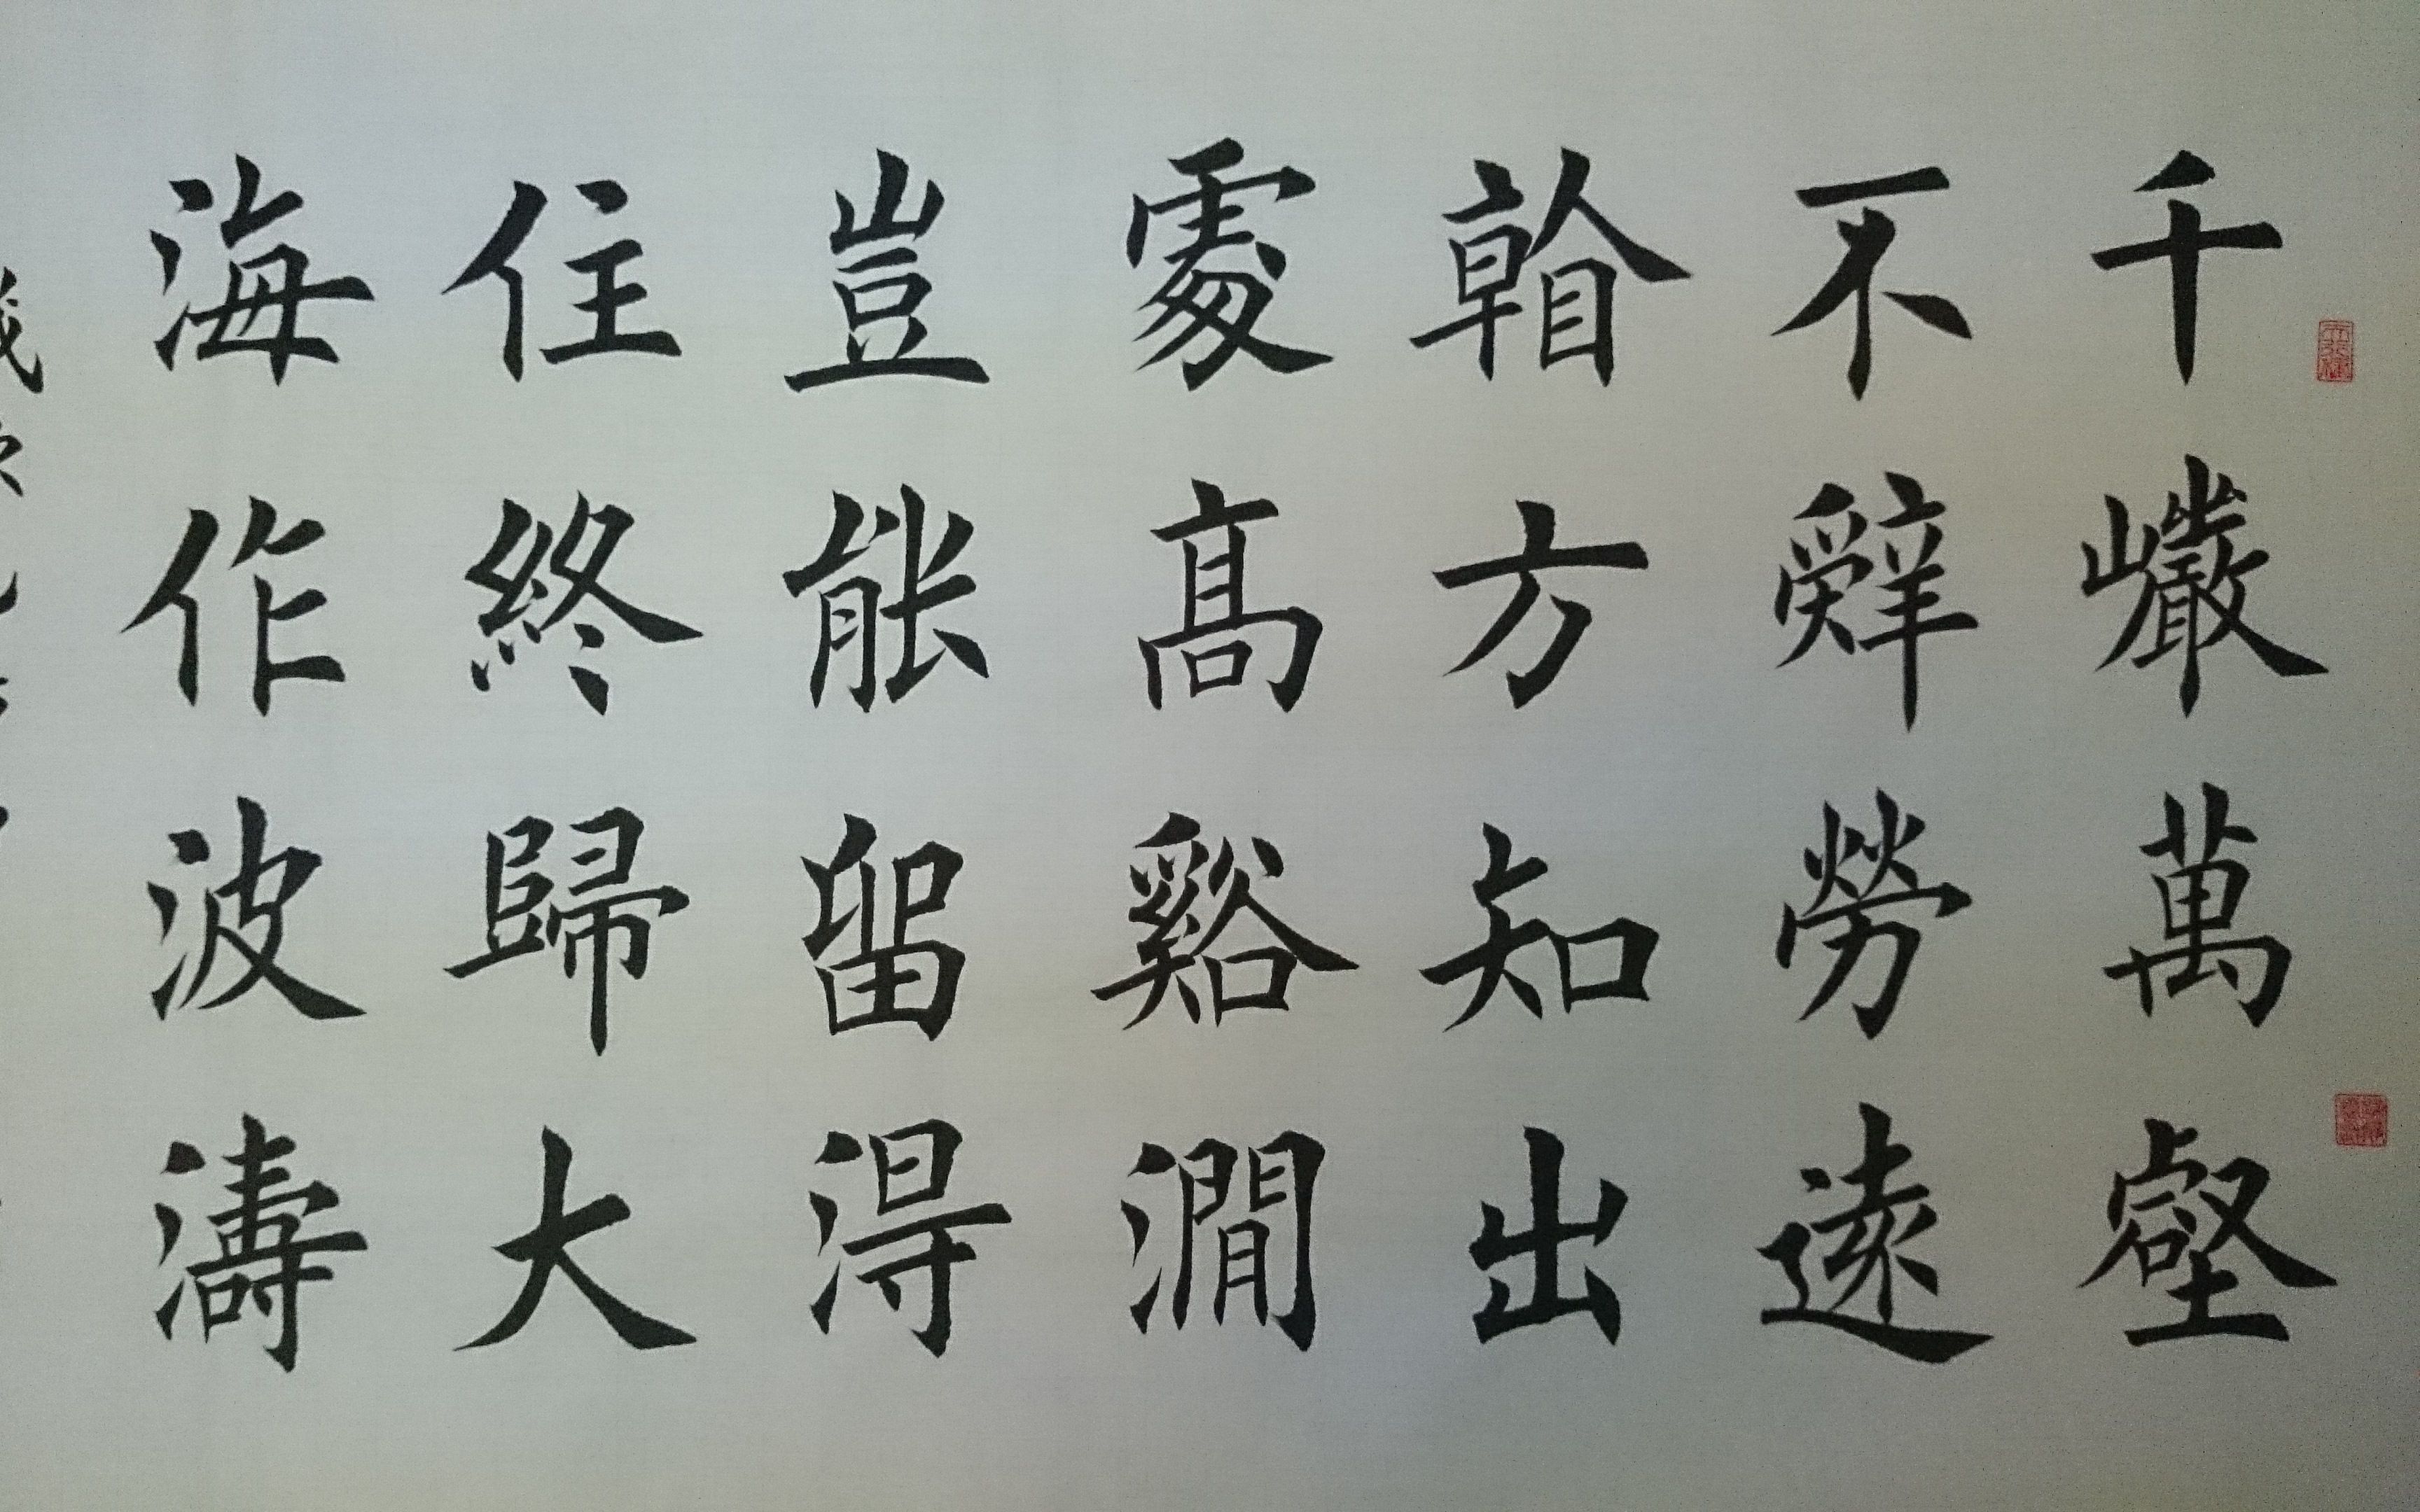 千巗萬壑
不辭勞逺
看方知出
處髙谿澗
豈能留淂
住終歸大
海作波濤